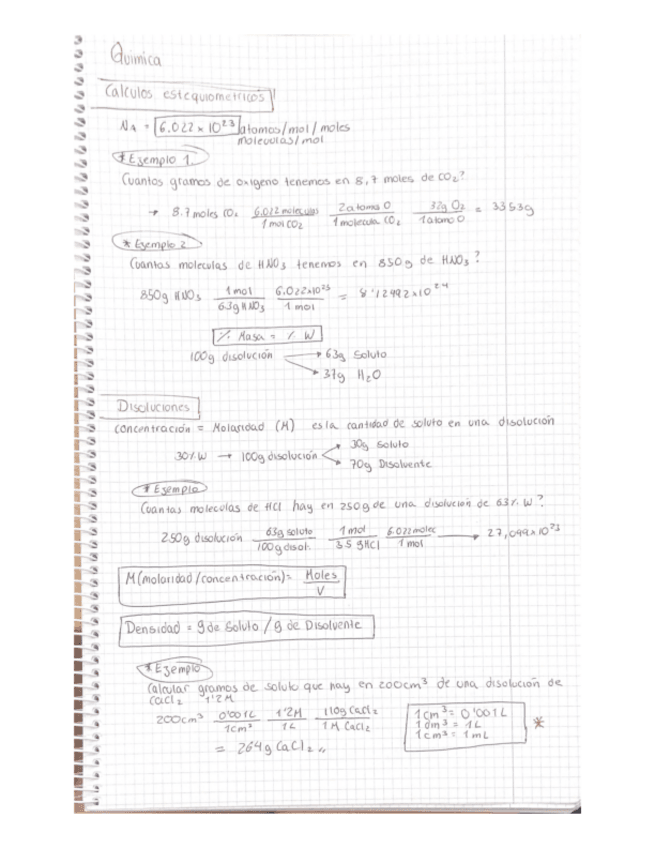 Quimica
Calculos estequiometricos
NA = 6.022 x 10^23 atomos/mol/moles
moleculas/mol
* Ejemplo 1.
Cuantos gramos de oxigeno tenemos en 8,7 moles de CO2?
→ 8.7 moles CO2 6.022 moleculas/1 mol CO2 2 atomos O/1 molecula CO2 32g O2/1 atomo O = 3353g
* Ejemplo 2
Cuantas moleculas de HNO3 tenemos en 850g de HNO3?
850g HNO3 1 mol/63g HNO3 6.022x10^23/1 mol = 8'12992x10^24
% Masa = % W
100g disolución → 63g Soluto
→ 37g H2O
Disoluciones
Concentración = Molaridad (M) es la cantidad de soluto en una disolución
30% W → 100g disolución → 30g Soluto
→ 70g Disolvente
* Ejemplo
Cuantas moleculas de HCl hay en 250g de una disolución de 63% W?
250g disolución 63g soluto/100g disol. 1 mol/3.5 gHCl 6.022 molec/1 mol → 27,099x10^23
M (molaridad/concentración) = Moles/V
Densidad = g de Soluto / g de Disolvente
* Ejemplo
Calcular gramos de soluto que hay en 200cm^3 de una disolución de
CaCl2 1'2M
200cm^3 0'001L/1cm^3 1'2M/1L 110g CaCl2/1M CaCl2
= 264g CaCl2 ,,
1cm^3 = 0'001L
1dm^3 = 1L
1cm^3 = 1mL
*